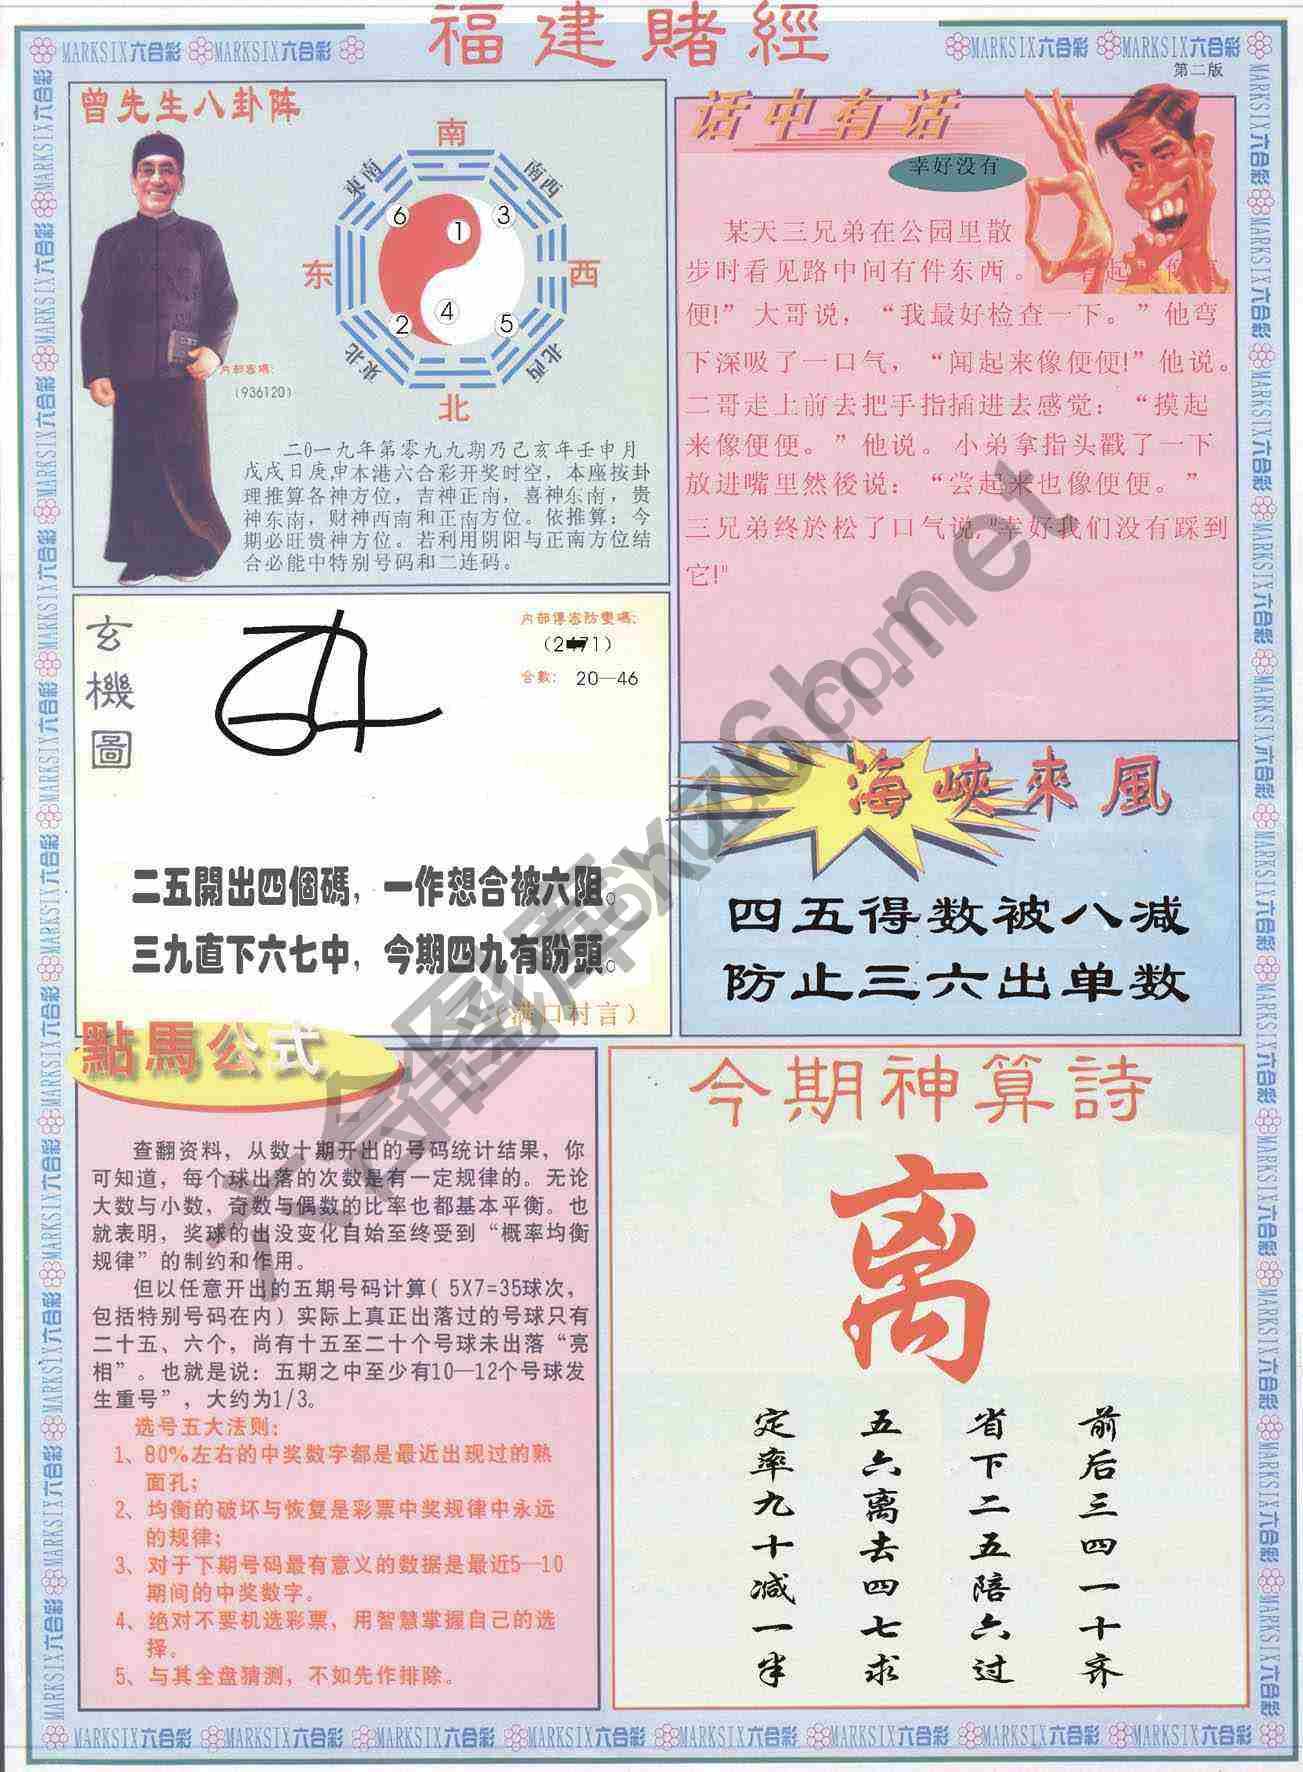 福建賭經
MARKSIX六合彩 MARKSIX六合彩
MARKSIX六合彩 MARKSIX六合彩
第二版
曾先生八卦阵
南
東南
南西
6
1
3
东
西
4
2
5
東北
北西
北
内部密碼:
(936120)
二0一九年第零九九期乃己亥年壬申月
戊戌日庚申本港六合彩开奖时空，本座按卦
理推算各神方位，吉神正南，喜神东南，贵
神东南，财神西南和正南方位。依推算：今
期必旺贵神方位。若利用阴阳与正南方位结
合必能中特别号码和二连码。
话中有话
幸好没有
某天三兄弟在公园里散
步时看见路中间有件东西。
便!”大哥说，“我最好检查一下。”他弯
下深吸了一口气，“闻起来像便便!”他说。
二哥走上前去把手指插进去感觉：“摸起
来像便便。”他说。小弟拿指头戳了一下
放进嘴里然後说：“尝起来也像便便。”
三兄弟终於松了口气说,"幸好我们没有踩到
它!"
玄機圖
内部傳密防變碼:
71)
合數: 20—46
二五開出四個碼，一作想合被六阻。
三九直下六七中，今期四九有盼頭。
(满口村言)
海峽來風
四五得数被八减
防止三六出单数
點馬公式
查翻资料，从数十期开出的号码统计结果，你
可知道，每个球出落的次数是有一定规律的。无论
大数与小数，奇数与偶数的比率也都基本平衡。也
就表明，奖球的出没变化自始至终受到“概率均衡
规律”的制约和作用。
但以任意开出的五期号码计算( 5X7=35球次，
包括特别号码在内) 实际上真正出落过的号球只有
二十五、六个，尚有十五至二十个号球未出落“亮
相”。也就是说：五期之中至少有10—12个号球发
生重号”，大约为1/3。
选号五大法则:
1、80%左右的中奖数字都是最近出现过的熟
面孔;
2、均衡的破坏与恢复是彩票中奖规律中永远
的规律;
3、对于下期号码最有意义的数据是最近5—10
期间的中奖数字。
4、绝对不要机选彩票，用智慧掌握自己的选
择。
5、与其全盘猜测，不如先作排除。
今期神算詩
离
前后三四一十齐
省下二五陪六过
五六离去四七求
定率九十减一半
MARKSIX六合彩 MARKSIX六合彩 MARKSIX六合彩 MARKSIX六合彩 MARKSIX六合彩 MARKSIX六合彩 MARKSIX六合彩 MARKSIX六合彩